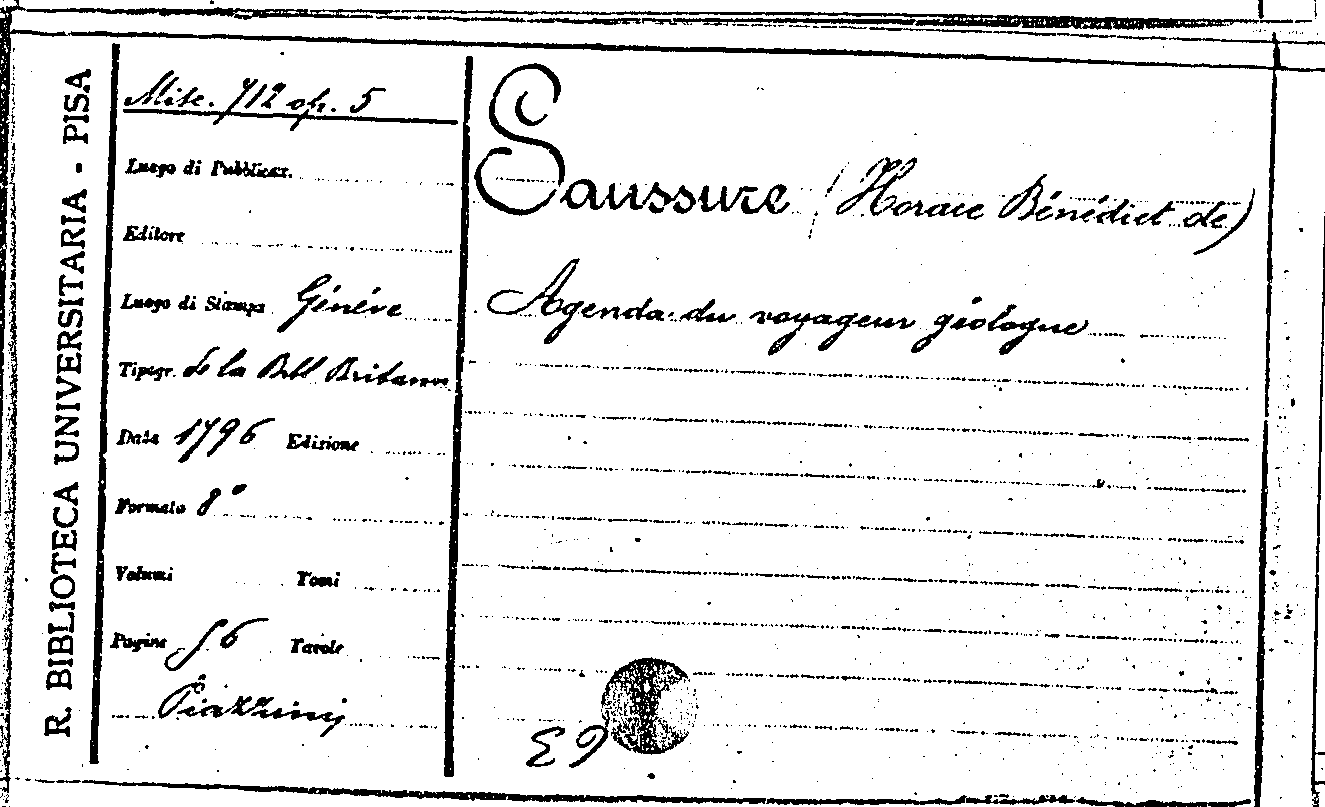 R. BIBLIOTECA UNIVERSITARIA - PISA
Misc. 712 op. 5
Luogo di Pubblicaz.
Editore
Luogo di Stampa Généve
Tipogr. de la Bibl Britann
Data 1796 Edizione
Formato 8°
Volumi Tomi
Pagine 56 Tavole
Piazzini
Saussure (Horace Bénédict de)
Agenda du voyageur géologue
E9